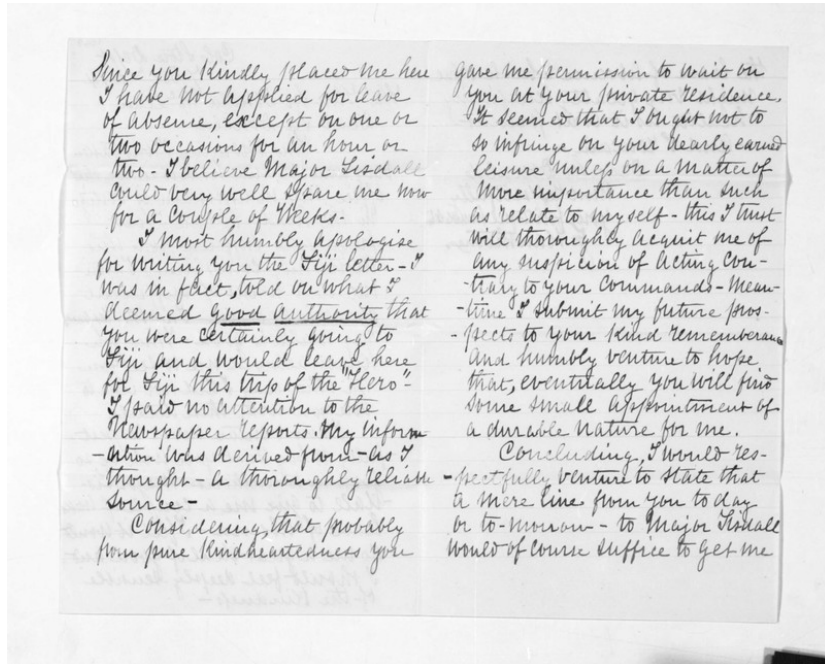 Since you kindly placed me here
I have not applied for leave
of absence, except on one or
two occasions for an hour or
two - I believe Major Tisdall
could very well spare me now
for a couple of Weeks -
I most humbly apologise
for writing you the Fiji letter - I
was in fact, told on what I
deemed good authority that
you were certainly going to
Fiji and would leave here
for Fiji this trip of the "Hero" -
I paid no attention to the
Newspaper reports. My inform
-ation was derived from - as I
thought - a thoroughly reliable
source -
Considering, that probably
from pure kindheartedness you
gave me permission to wait on
you at your private residence,
It seemed that I ought not to
so infringe on your dearly earned
leisure unless on a matter of
more importance than such
as relate to myself - this I trust
will thoroughly acquit me of
any suspicion of acting con-
-trary to your commands - Mean-
-time I submit my future pros-
-pects to your kind rememberance
and humbly venture to hope
that, eventually you will find
some small appointment of
a durable nature for me.
Concluding, I would res-
-pectfully venture to state that
a mere line from you to day
or to-morrow - to Major Tisdall
would of course suffice to get me